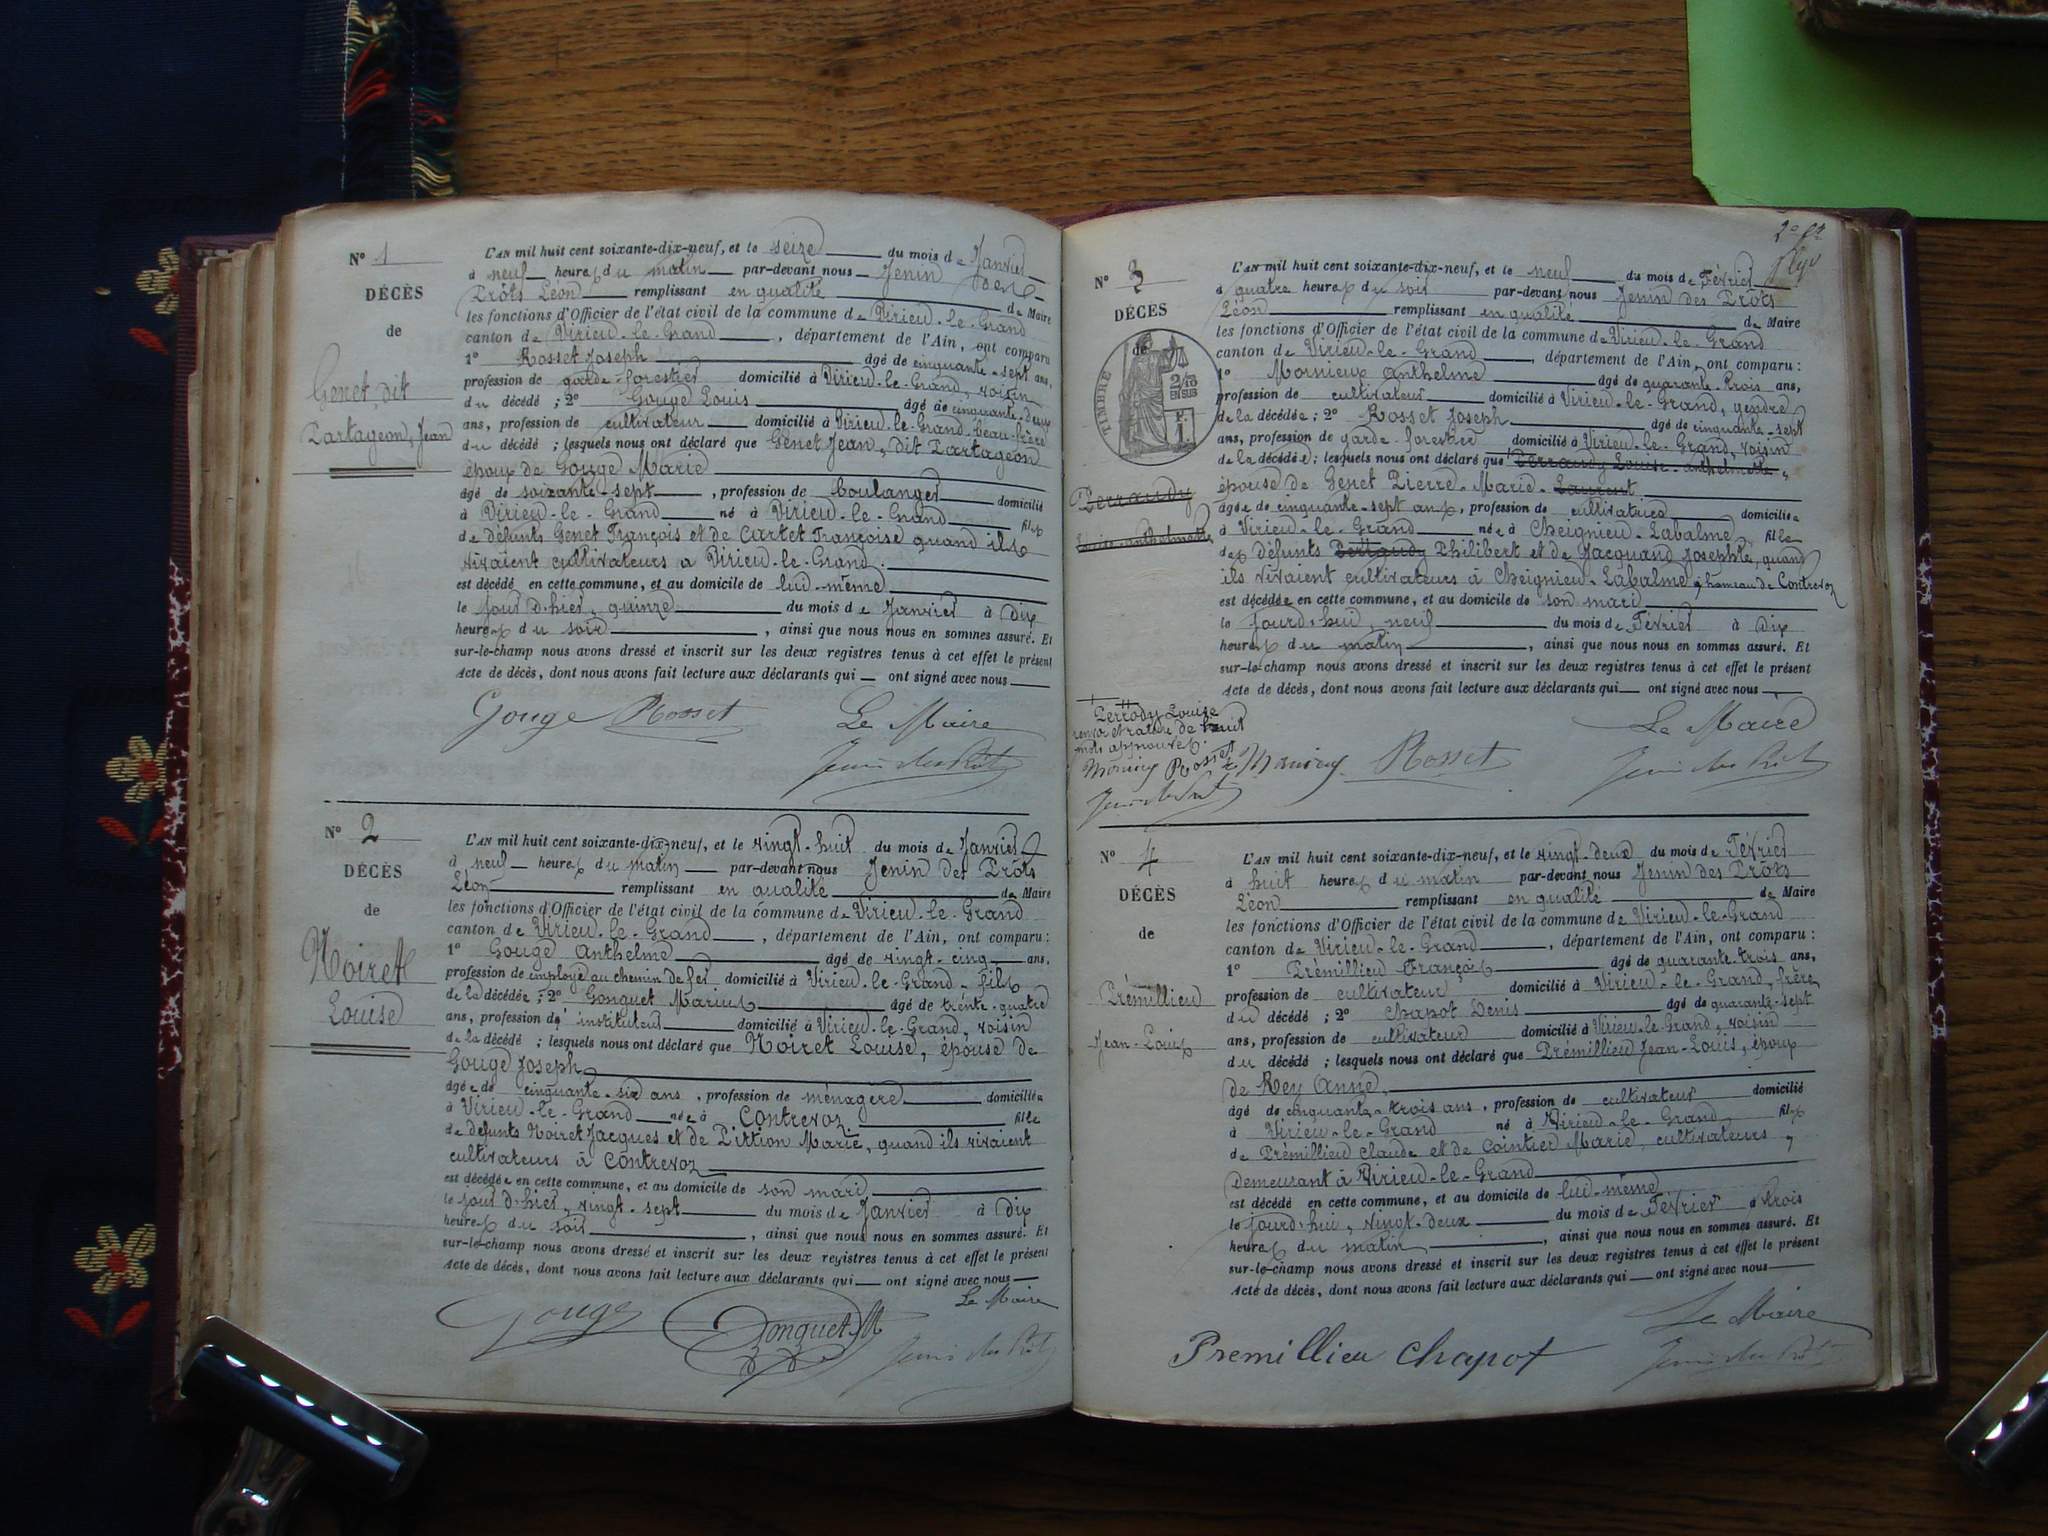 N° 1
DÉCÈS
de
Genet dit
Partageon, Jean
L'AN mil huit cent soixante-dix-neuf, et le seize du mois de Janvier
à neuf heures du matin par-devant nous Jenin des
Prôts Léon remplissant en qualité de Maire
les fonctions d'Officier de l'état civil de la commune de Virieu-le-Grand
canton de Virieu-le-Grand, département de l'Ain, ont comparu
1° Rosset Joseph âgé de cinquante-sept ans,
profession de garde-forestier domicilié à Virieu-le-Grand, voisin
du décédé ; 2° Gouge Louis âgé de cinquante-deux
ans, profession de cultivateur domicilié à Virieu-le-Grand beau-frère
du décédé ; lesquels nous ont déclaré que Genet Jean, dit Partageon
époux de Gouge Marie
âgé de soixante-sept, profession de boulanger domicilié
à Virieu-le-Grand né à Virieu-le-Grand fils
de défunts Genet François et de Cartet Françoise quand ils
vivaient cultivateurs à Virieu-le-Grand.
est décédé en cette commune, et au domicile de lui-même
le jour d'hier, quinze du mois de Janvier à dix
heures du soir, ainsi que nous nous en sommes assuré. Et
sur-le-champ nous avons dressé et inscrit sur les deux registres tenus à cet effet le présent
Acte de décès, dont nous avons fait lecture aux déclarants qui ont signé avec nous
Gouge Rosset Le Maire
Jenin des Prôts
N° 2
DÉCÈS
de
Noiret
Louise
L'AN mil huit cent soixante-dix-neuf, et le vingt-huit du mois de Janvier
à neuf heures du matin par-devant nous Jenin des Prôts
Léon remplissant en qualité de Maire
les fonctions d'Officier de l'état civil de la commune de Virieu-le-Grand
canton de Virieu-le-Grand, département de l'Ain, ont comparu :
1° Gouge Anthelme âgé de vingt-cinq ans,
profession de employé au chemin de fer domicilié à Virieu-le-Grand fils
de la décédée ; 2° Gonguet Marius âgé de trente-quatre
ans, profession d'instituteur domicilié à Virieu-le-Grand, voisin
de la décédé ; lesquels nous ont déclaré que Noiret Louise, épouse de
Gouge Joseph
âgée de cinquante-six ans, profession de ménagère domiciliée
à Virieu-le-Grand née à Contrevoz fille
de défunts Noiret Jacques et de Pittion Marie, quand ils vivaient
cultivateurs à Contrevoz
est décédée en cette commune, et au domicile de son mari
le jour d'hier, vingt-sept du mois de Janvier à dix
heures du soir, ainsi que nous nous en sommes assuré. Et
sur-le-champ nous avons dressé et inscrit sur les deux registres tenus à cet effet le présent
Acte de décès, dont nous avons fait lecture aux déclarants qui ont signé avec nous
Le Maire
Gouge Gonguet M
Jenin des Prôts
N° 3
DÉCÈS
de
TIMBRE
2/10
EN SUS
Perraudy
Louise-Anthelmette
L'AN mil huit cent soixante-dix-neuf, et le neuf du mois de Février
à quatre heures du soir par-devant nous Jenin des Prôts
Léon remplissant en qualité de Maire
les fonctions d'Officier de l'état civil de la commune de Virieu-le-Grand
canton de Virieu-le-Grand, département de l'Ain, ont comparu :
1° Monnieux Anthelme âgé de quarante-trois ans,
profession de cultivateur domicilié à Virieu-le-Grand, gendre
de la décédée ; 2° Rosset Joseph âgé de cinquante-sept
ans, profession de garde-forestier domicilié à Virieu-le-Grand, voisin
de la décédée ; lesquels nous ont déclaré que Perraudy Louise-Anthelmette
épouse de Genet Pierre-Marie-Laurent
âgée de cinquante-sept ans, profession de cultivatrice domiciliée
à Virieu-le-Grand née à Cheignieu-Labalme fille
des défunts Perraudy Philibert et de Jacquand Josephte, quand
ils vivaient cultivateurs à Cheignieu-Labalme, hameau de Contrevoz
est décédée en cette commune, et au domicile de son mari
le jourd'hui, neuf du mois de Février à dix
heures du matin, ainsi que nous nous en sommes assuré. Et
sur-le-champ nous avons dressé et inscrit sur les deux registres tenus à cet effet le présent
Acte de décès, dont nous avons fait lecture aux déclarants qui ont signé avec nous
Perrody Louise
renvoi et rature de huit
mots approuvés.
Le Maire
Rosset
Jenin des Prôts
N° 4
DÉCÈS
de
Prémillieu
Jean-Louis
L'AN mil huit cent soixante-dix-neuf, et le vingt-deux du mois de Février
à huit heures du matin par-devant nous Jenin des Prôts
Léon remplissant en qualité de Maire
les fonctions d'Officier de l'état civil de la commune de Virieu-le-Grand
canton de Virieu-le-Grand, département de l'Ain, ont comparu :
1° Prémillieu François âgé de quarante-trois ans,
profession de cultivateur domicilié à Virieu-le-Grand, frère
du décédé ; 2° Chapot Denis âgé de quarante-sept
ans, profession de cultivateur domicilié à Virieu-le-Grand, voisin
du décédé ; lesquels nous ont déclaré que Prémillieu Jean-Louis, époux
de Rey Anne
âgé de cinquante-trois ans, profession de cultivateur domicilié
à Virieu-le-Grand né à Virieu-le-Grand fils
de Prémillieu Claude et de Cointier Marie, cultivateurs,
demeurant à Virieu-le-Grand
est décédé en cette commune, et au domicile de lui-même
le jourd'hui, vingt-deux du mois de Février à trois
heures du matin, ainsi que nous nous en sommes assuré. Et
sur-le-champ nous avons dressé et inscrit sur les deux registres tenus à cet effet le présent
Acte de décès, dont nous avons fait lecture aux déclarants qui ont signé avec nous
Le Maire
Premillieu Chapot
Jenin des Prôts